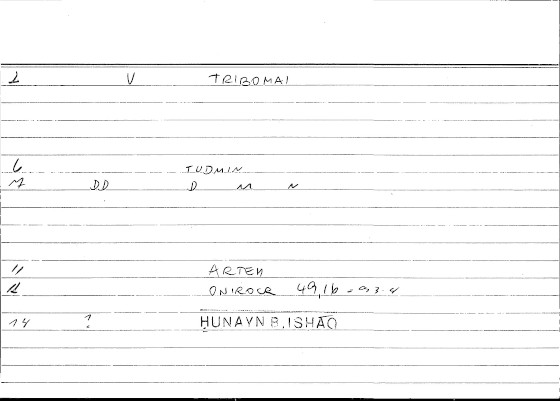 1 V TRIBOMAI
6 TUDMIN
M DD D M N
11 ARTEM
12 ONIROCR 49,16 - 93.4
14 ? ḤUNAYN B. ISḤĀQ